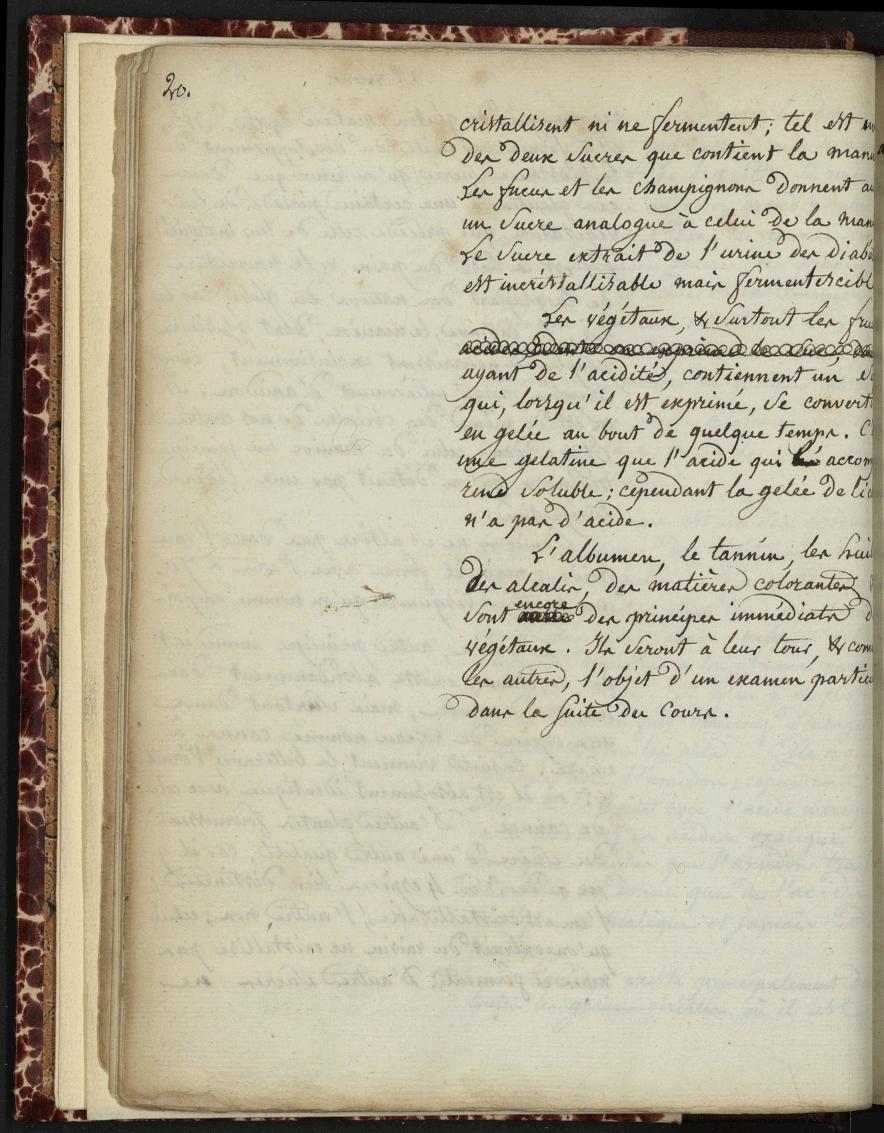 20.
cristallisent ni ne fermentent; tel est
des deux sucres que contient la man
Les fucus et les champignons donnent a
un sucre analogue à celui de la man
Le sucre extrait de l'urine des diab
est incristallisable mais fermentescibl
Les végétaux, & surtout les fru
ayant de l'acidité, contiennent un
qui, lorsqu'il est exprimé, se convert
en gelée au bout de quelque temps. C'
une gelatine que l'acide qui accom
rend soluble; cependant la gelée de
n'a pas d'acide.
L'albumen, le tannin, les huil
Des alcalis, des matières colorantes
sont encore des principes immédiats d
végétaux. Ils seront à leur tour, & com
les autres, l'objet d'un examen particu
dans la suite du cours.